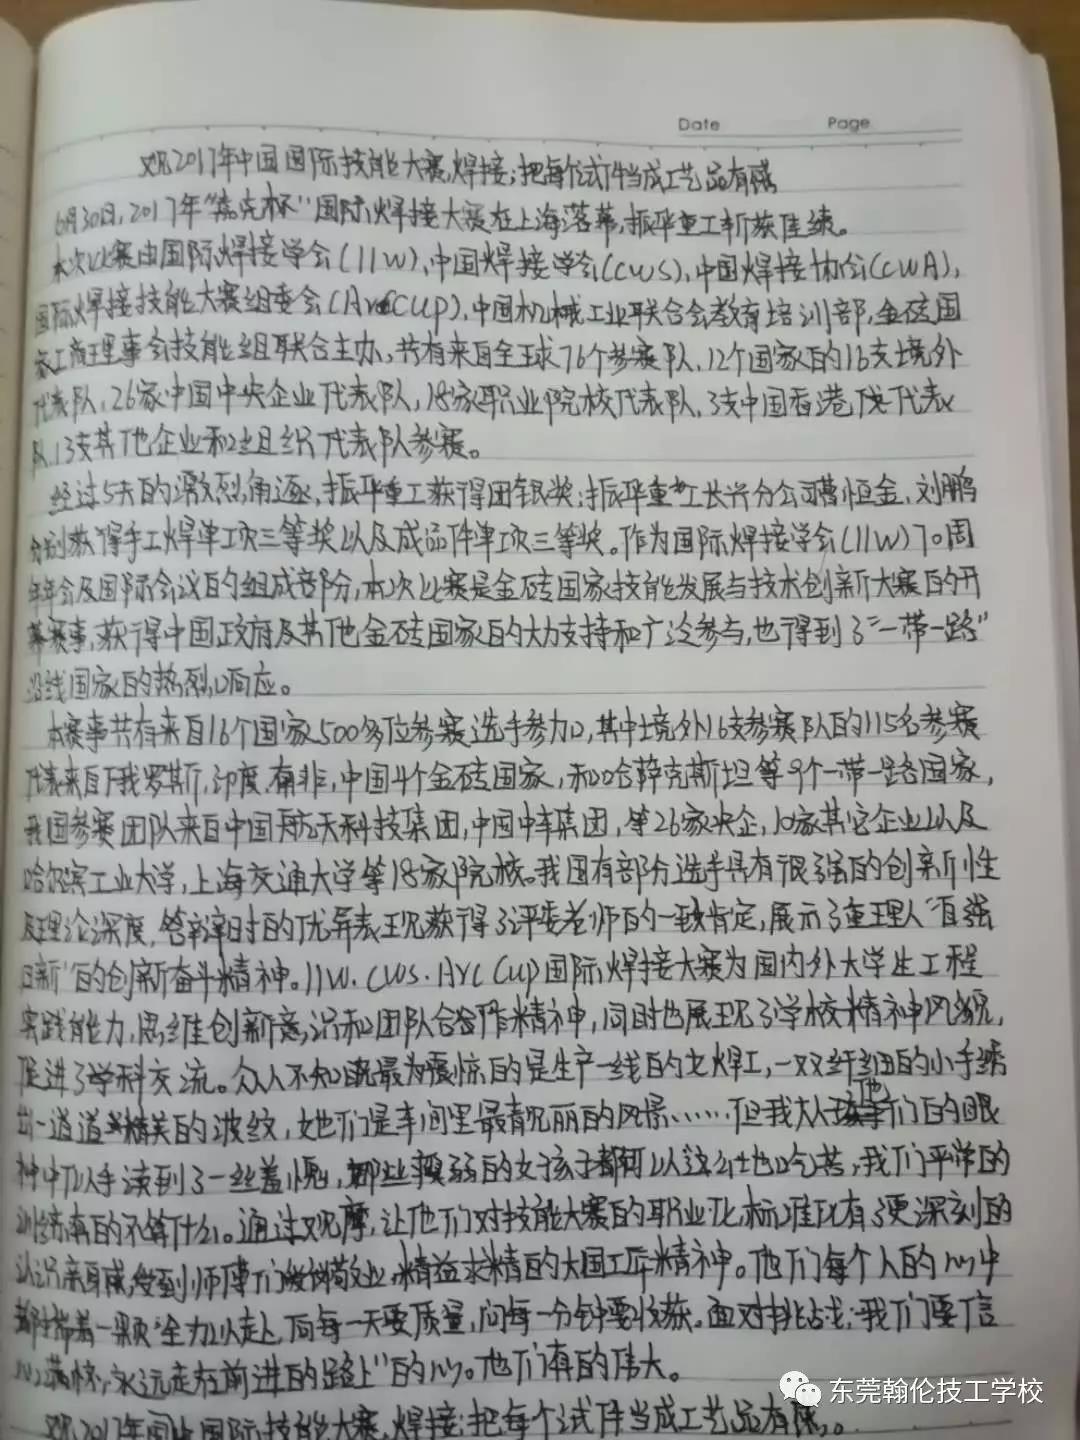 Date Page
观2017年中国国际技能大赛焊接;把每个试件当成工艺品有感
6月30日,2017年"嘉克杯"国际焊接大赛在上海落幕,振华重工斩获佳绩。
本次比赛由国际焊接学会(IIW),中国焊接学会(CWS),中国焊接协会(CWA),
国际焊接技能大赛组委会(ArcCup),中国机械工业联合会教育培训部,金砖国
家工商理事会技能组联合主办,共有来自全球76个参赛队,12个国家的16支境外
代表队,26家中国中央企业代表队,18家职业院校代表队,3支中国香港代表
队,13支其他企业和组织代表队参赛。
经过5天的激烈角逐,振华重工获得团银奖;振华重工长兴分公司曹恒金、刘鹏
分别获得手工焊单项三等奖以及成品件单项三等奖。作为国际焊接学会(IIW)70周
年年会及国际会议的组成部分,本次比赛是金砖国家技能发展与技术创新大赛的开
幕赛事,获得中国政府及其他金砖国家的大力支持和广泛参与,也得到了"一带一路"
沿线国家的热烈响应。
本赛事共有来自16个国家500多位参赛选手参加,其中境外16支参赛队的115名参赛
代表来自俄罗斯,印度,南非,中国4个金砖国家,和哈萨克斯坦等9个一带一路国家,
我国参赛团队来自中国航天科技集团,中国中车集团,等26家央企,10家其它企业以及
哈尔滨工业大学,上海交通大学等18家院校。我国有部分选手具有很强的创新性
及理论深度,答辩时的优异表现获得了评委老师的一致肯定,展示了重理人"自强
日新"的创新奋斗精神。IIW.CWS.Arc Cup国际焊接大赛为国内外大学生工程
实践能力,思维创新意识和团队合作精神,同时也展现了学校精神风貌,
促进了学科交流。众人不知晓最为震惊的是生产一线的女焊工,一双纤细的小手绣
出一道道精美的波纹,她们是车间里最靓丽的风景……但我从他们的眼
神中似乎读到了一丝羞愧,那些瘦弱的女孩子都可以这么地吃苦,我们平常的
训练真的不算什么。通过观摩,让他们对技能大赛的职业化,标准化有了更深刻的
认识亲身感受到师傅们敬业,精益求精的大国工匠精神。他们每个人的心中
都揣着一颗"全力以赴,向每一天要质量,向每一分钟要收获。面对挑战;我们要信
心满怀,永远走在前进的路上"的心。他们真的伟大。
观2017年中国国际技能大赛焊接;把每个试件当成工艺品有感。
东莞翰伦技工学校